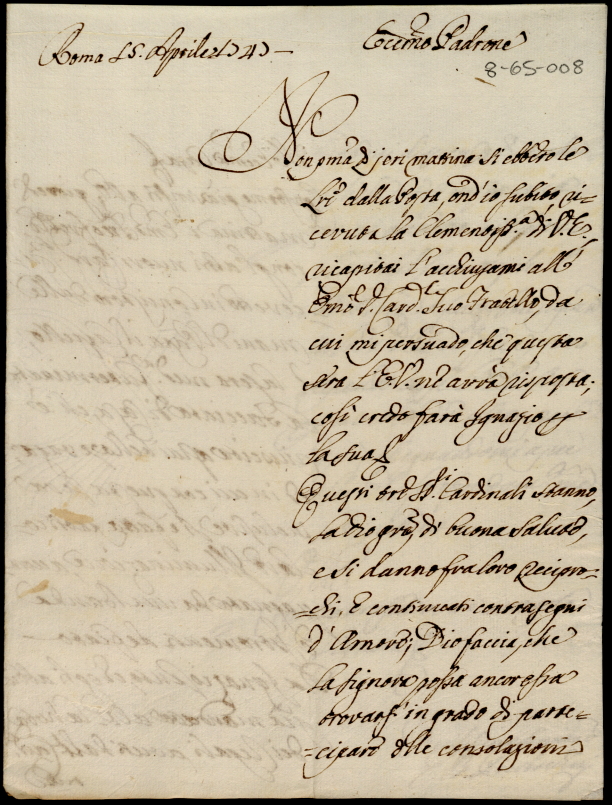 Roma 15. Aprile 1747 — Eccmo Padrone
8-65-008
Non pma d'jeri mattina si ebbero le
Lre dalla Posta, ond'io subito, ri-
cevuta la Clemenoiss.a di V.E.
ricapitai l'acchiusami all'
Emo S. Card.le Suo Fratello, da
cui mi persuado, che questa
sera l'E.V. ne avrà risposta;
così credo farà Ignazio
la sua
Questi tre SS.ri Cardinali stanno,
la Dio gra, di buona salute,
e si danno fra loro recipro-
chi, e continuati contrasegni
d'Amore; Dio faccia, che
la Signora possa ancor essa
trovarsi in grado di parte-
=cipare delle consolazioni